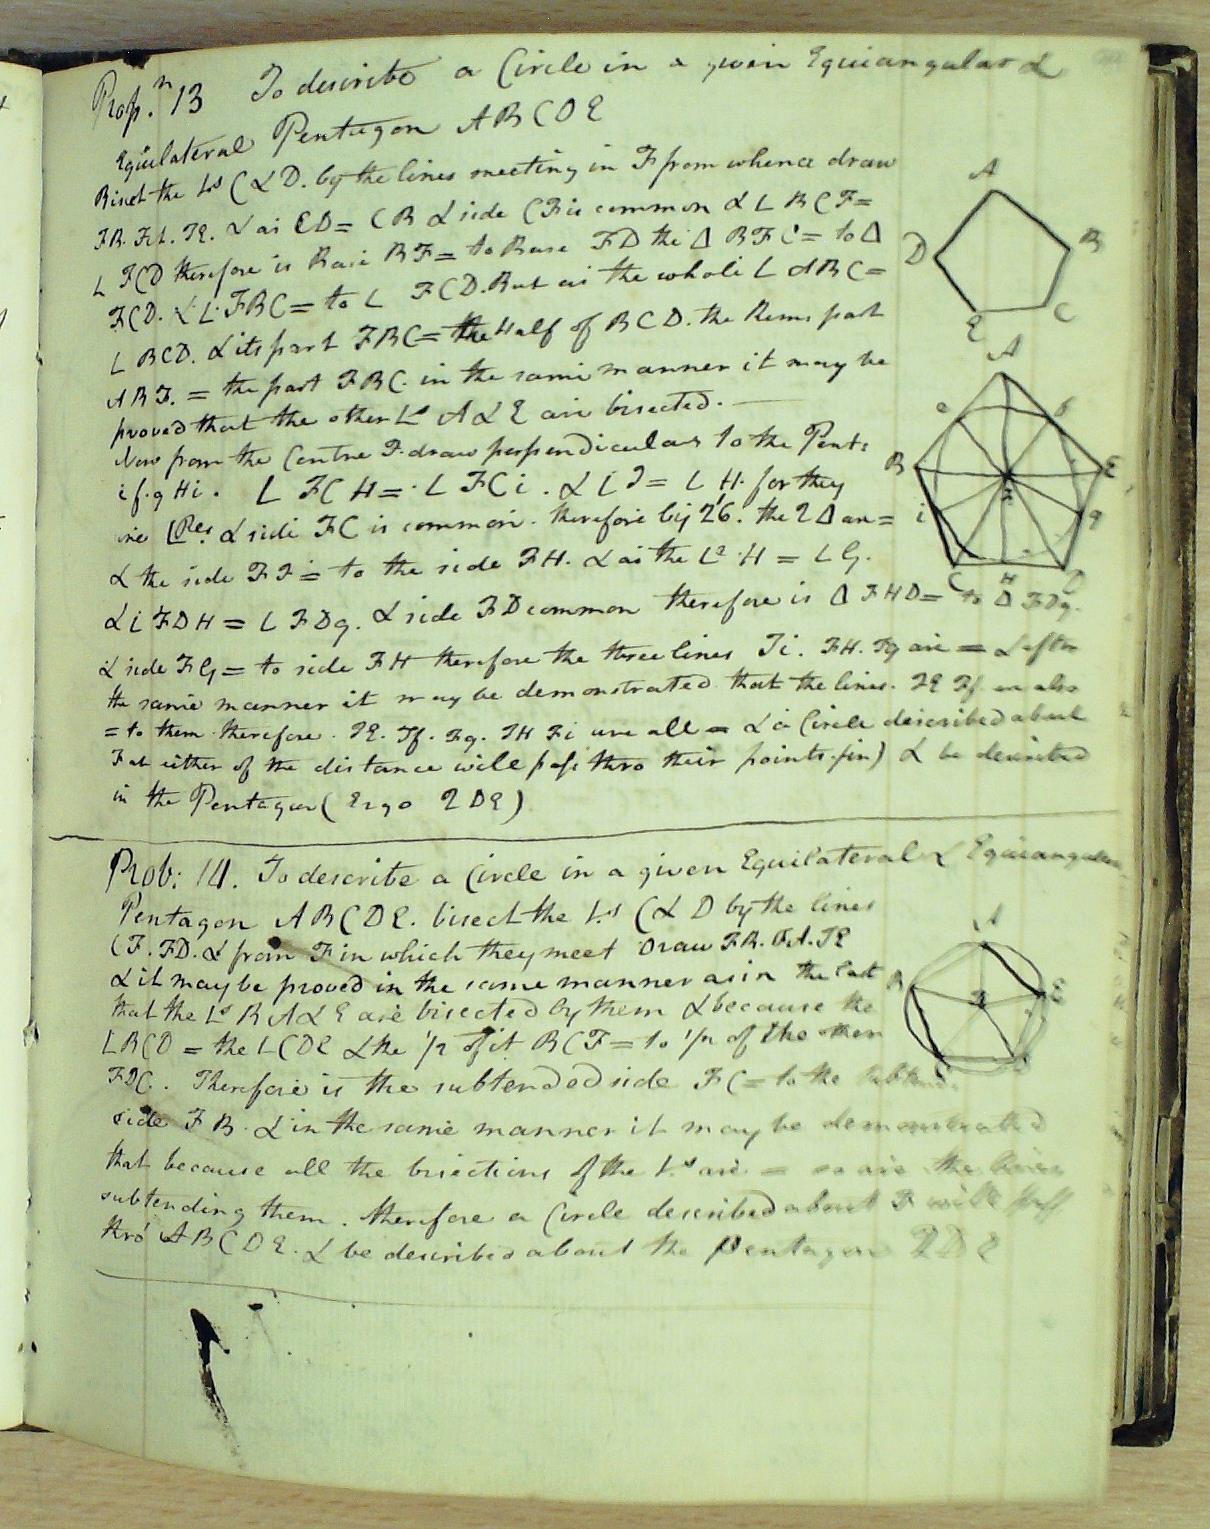 Prop.n 13 To describe a Circle in a given Equiangular &
Equilateral Pentagon ABCDE
Bisect the Ls C & D. by the lines meeting in F from whence draw
FB. FA. FE. & as CD = CB & side CF is common & L BCF =
L FCD therefore is Base BF = to Base FD the Δ BFC = to Δ
FCD. & L. FBC = to L FCD. But as the whole L ABC =
L BCD. & its part FBC = the Half of BCD. the Remg part
ABF. = the part FBC. in the same manner it may be
proved that the other Ls A & E are bisected.
Now from the Centre F. draw perpendiculars to the Pent:
e f. g Hi. L FCH = L FCi. & L I = L H. for they
are Res & side FC is common. therefore by 26. the 2 Δ are =
& the side FI = to the side FH. & as the L H = L G.
& L FDH = L FDg. & side FD common therefore is Δ FHD = to Δ FDg.
& side FG = to side FH therefore the three lines Fi. FH. Fg are = & after
the same manner it may be demonstrated that the lines. FE Ff are also
= to them therefore. FE. Ff. Fg. FH Fi are all = & a Circle described about
F at either of the distance will pass thro their points & be described
in the Pentagon (Ergo QDE)
Prob: 14. To describe a Circle in a given Equilateral & Equiangular
Pentagon ABCDE. bisect the Ls C & D by the lines
CF. FD. & from F in which they meet Draw FB. FA. FE
& it may be proved in the same manner as in the last
that the Ls B A & E are bisected by them & because the
L BCD = the L CDE & the 1/2 of it BCF = to 1/2 of the other
FDC. Therefore is the subtended side FC = to the subtend.
side FB. & in the same manner it may be demonstrated
that because all the bisections of the Ls are = so are the lines
subtending them. therefore a Circle described about F will pass
thro' ABCDE. & be described about the Pentagon QDE
A
D
B
E
C
A
e
f
B
E
F
i
g
C
H
D
A
B
E
F
C
D